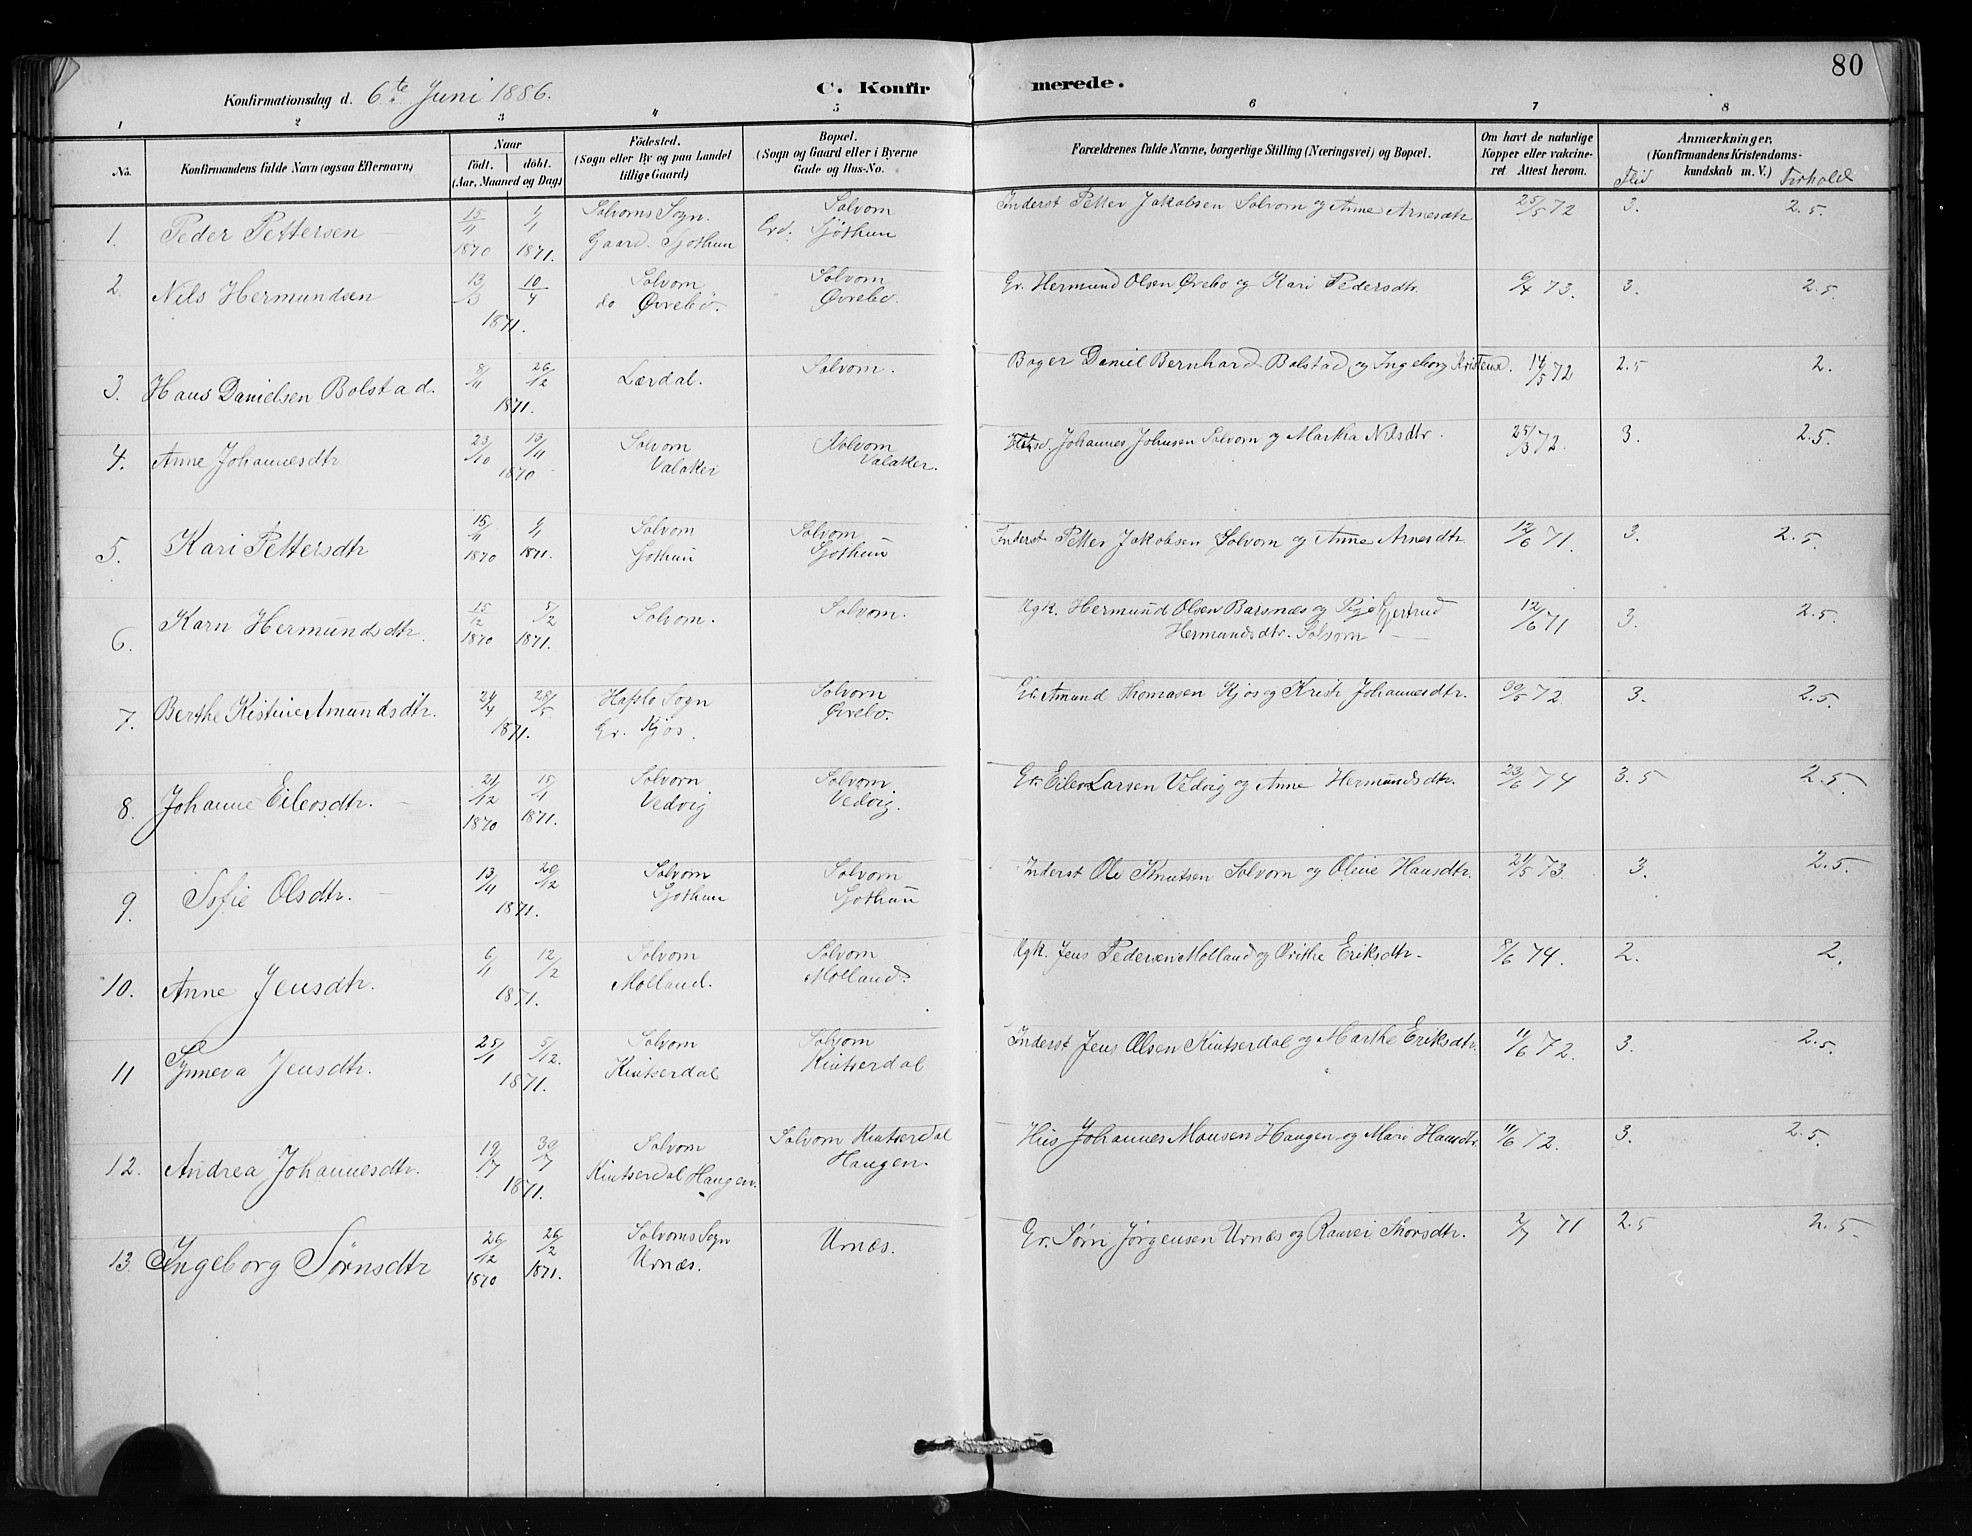 80
Konfirmationsdag d. 6te Juni 1886. C. Konfirmerede.
1 2 3 4 5 6 7 8
No. Konfirmandens fulde Navn (ogsaa Efternavn) Naar födt. döbt. (Aar, Maaned og Dag) Födested. (Sogn eller By og paa Landet tillige Gaard) Bopæl. (Sogn og Gaard eller i Byerne Gade og Hus-No. Forældrenes fulde Navne, borgerlige Stilling (Næringsvei) og Bopæl. Om havt de naturlige Kopper eller vakcineret Attest herom. Anmærkninger, (Konfirmandens Kristendomskundskab m. V.) Flid Forhold
1. Peder Pettersen 15/11 1870 1/1 1871. Solvorns Sogn. Gaard. Sjøthun Solvorn Sjøthun Inderst Petter Jakobsen Solvorn og Anne Arnesdtr 25/5 72 3. 2.5.
2. Nils Hermundsen 13/3 10/4 1871. Solvorn do Øvrebø. Solvorn Øvrebø. Gr. Hermund Olsen Øvebø og Kari Pedersdtr. 73. 3. 2.5.
3. Hans Danielsen Bolstad. 8/11 26/12 1871. Lærdal. Solvorn. Bager Daniel Bernhard Bolstad og Ingeborg Kristensd. 14/5 72 2.5 2.
4. Anne Johannesdtr 23/10 13/11 1870 Solvorn Valaker Solvorn Valaker. Johannes Johnsen Solvorn og Martha Nilsdtr. 25/3 72. 3. 2.5.
5. Kari Pettersdtr 15/11 1870 1/1 1871. Solvorn Sjøthun Solvorn Sjøthun Inderst Petter Jakobsen Solvorn og Anne Arnesdtr 12/6 71. 3. 2.5.
6. Karn Hermundsdtr. 15/12 1870 5/2 1871. Solvorn. Solvorn. Ugk. Hermund Olsen Barsnæs og Pige Gjertrud Hermundsdtr. Solvorn 12/6 71 3. 2.5.
7. Berthe Kistine Amundsdtr. 24/4 28/5 1871. Hafslo Sogn Gr. Kjos. Solvorn Øvrebø. Gr. Amund Thomasen Kjos og Kristi Johannesdtr. 30/5 72 3. 2.5.
8. Johanne Eilersdtr. 21/12 1870 15/1 1871. Solvorn Vedvig Solvorn. Vedvig. Gr. Eiler Larsen Vedvig og Anne Hermundsdtr. 23/6 74 3.5 2.5.
9. Sofie Olsdtr. 13/11 20/12 1871. Solvorn Sjøthun Solvorn Sjøthun Inderst Ole Knutsen Solvorn og Oline Hansdtr. 21/5 73 3. 2.5.
10. Anne Jensdtr. 6/1 12/2 1871. Solvorn Molland. Solvorn Molland. Ugk. Jens Pedersen Molland og Brithe Eriksdtr. 8/6 74. 2. 2.
11 Synneva Jensdtr. 25/11 5/12. 1871. Solvorn Kintserdal Solvorn Kintserdal Inderst Jens Olsen Kintserdal og Marthe Eriksdtr. 11/6 72. 3. 2.5.
12. Andrea Johannesdtr. 19/7 30/7 1871. Solvorn Kintserdal Haugen. Solvorn Kintserdal Haugen. Hus Johannes Monsen Haugen og Mari Hansdtr 11/6 72. 3. 2.5.
13. Ingeborg Sørnsdtr 26/12 1870 26/2 1871. Solvorns Sogn Urnæs. Urnæs. Gr. Sørn Jørgensen Urnæs og Ranvei Thorsdtr. 2/7 71 2.5 2.5